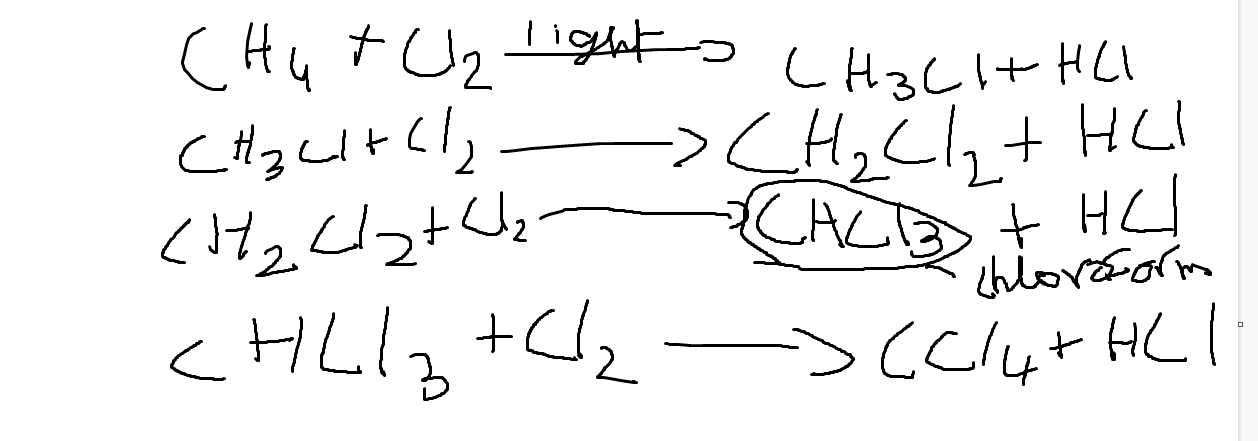 CH4 + Cl2 light → CH3Cl + HCl
CH3Cl + Cl2 → CH2Cl2 + HCl
CH2Cl2 + Cl2 → CHCl3 + HCl
chloroform
CHCl3 + Cl2 → CCl4 + HCl